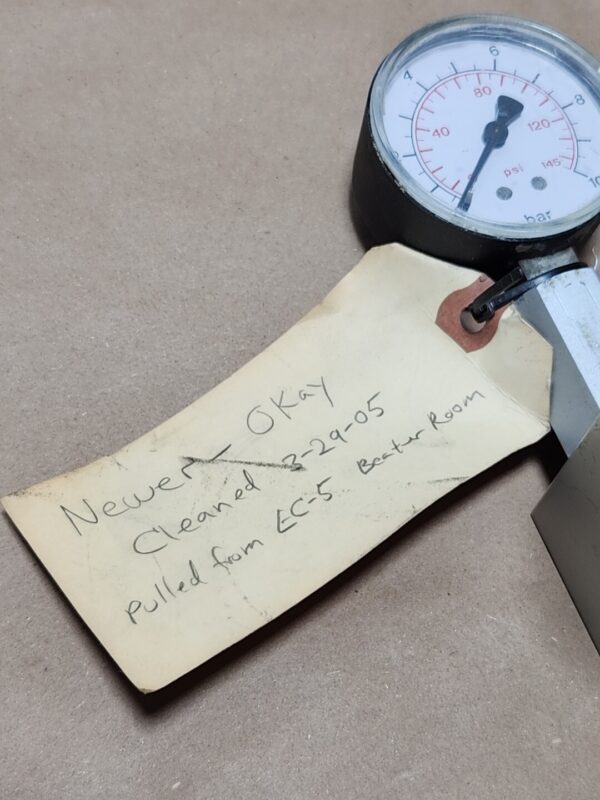 4
6
8
10
40
80
120
145
psi
bar
Newer - Okay
Cleaned 3-29-05
Pulled from EC-5 Beater Room